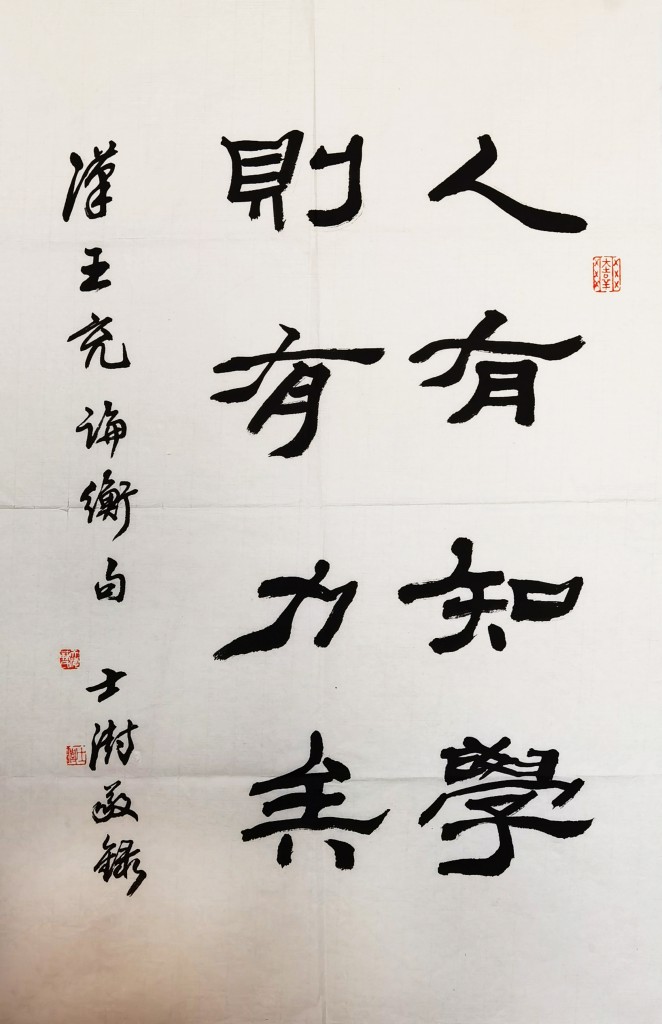 人有知學
則有力矣
漢王充論衡句 士澍敬錄
大吉羊